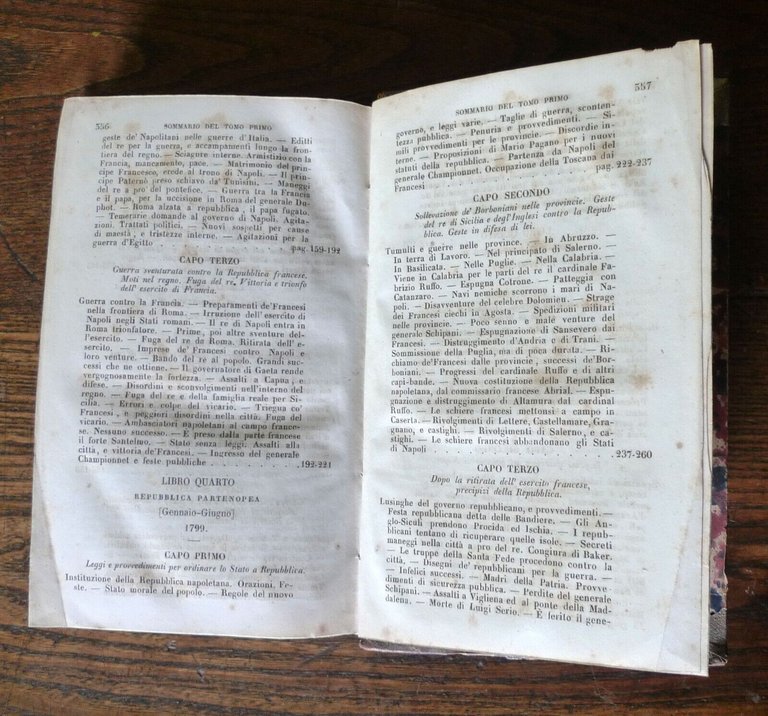 336 SOMMARIO DEL TOMO PRIMO
geste de' Napolitani nelle guerre d'Italia. — Editti
del re per la guerra, e accampamenti lungo la fron-
tiera del regno. — Sciagure interne. Armistizio con la
Francia, mancamento, pace. — Matrimonio del prin-
cipe Francesco, erode al trono di Napoli. — Il prin-
cipe Paternò preso schiavo da' Tunisini. — Maneggi
del re a pro' del pontefice. — Guerra tra la Francia
e il papa, per la uccisione in Roma del generale Du-
phot. — Roma alzata a republica, il papa fugato.
— Temerarie domande al governo di Napoli. Agita-
zioni. Trattati politici. — Nuovi sospetti per cause
di maestà, e tristezze interne. — Agitazioni per la
guerra d'Egitto . . . . . . . . . . pag. 159-192
CAPO TERZO
Guerra sventurata contro la Repubblica francese.
Moti nel regno. Fuga del re. Vittoria e trionfo
dell'esercito di Francia.
Guerra contro la Francia. — Preparamenti de'Francesi
nella frontiera di Roma. — Irruzione dell'esercito di
Napoli negli Stati romani. — Il re di Napoli entra in
Roma trionfatore. — Prime, poi altre sventure del-
l'esercito. — Fuga del re da Roma. Ritirata dell'e-
sercito. — Imprese de' Francesi contro Napoli e
loro venture. — Bando del re al popolo. Grandi suc-
cessi che ne ottiene. — Il governatore di Gaeta rende
vergognosamente la fortezza. — Assalti a Capua, e
difese. — Disordini e sconvolgimenti nell'interno del
regno. — Fuga del re e della famiglia reale per Si-
cilia. — Errori e colpe del vicario. — Triegua co'
Francesi, e peggiori disordini nella città. Fuga del
vicario. — Ambasciatori napoletani al campo france-
se. Nessuno successo. — È preso dalla parte francese
il forte Santelmo. — Stato senza leggi. Assalti alla
città, e vittoria de'Francesi. — Ingresso del generale
Championnet e feste pubbliche . . . . . . 192-221
LIBRO QUARTO
REPUBBLICA PARTENOPEA
[Gennaio-Giugno]
1799.
CAPO PRIMO
Leggi e provvedimenti per ordinare lo Stato a Repubblica.
Instituzione della Republica napoletana. Orazioni. Fe-
ste. — Stato morale del popolo. — Regole del nuovo
SOMMARIO DEL TOMO PRIMO 337
governo, e leggi varie. — Taglie di guerra, sconten-
tezza pubblica. — Penuria e provvedimenti. — Si-
mili provvedimenti per le provincie. — Discordie in-
terne. — Proposizioni di Mario Pagano per i nuovi
statuti della repubblica. — Partenza da Napoli del
generale Championnet. Occupazione della Toscana dai
Francesi . . . . . . . . . . pag. 222-237
CAPO SECONDO
Sollevazione de' Borboniani nelle provincie. Geste
del re di Sicilia e degl'Inglesi contro la Repub-
blica. Geste in difesa di lei.
Tumulti e guerre nelle province. — In Abruzzo. —
In terra di Lavoro. — Nel principato di Salerno. —
In Basilicata. — Nelle Puglie. — Nella Calabria. —
Viene in Calabria per le parti del re il cardinale Fa-
brizio Ruffo. — Espugna Cotrone. — Patteggia con
Catanzaro. — Navi nemiche scorrono i mari di Na-
poli. — Disavventure del celebre Dolomieu. — Strage
dei Francesi ciechi in Agosta. — Spedizioni militari
nelle provincie. — Poco senno e male venture del
generale Schipani. — Espugnazione di Sansevero dai
Francesi. — Distruggimento d'Andria e di Trani. —
Sommissione della Puglia, ma di poca durata. — Ri-
chiamo de'Francesi dalle provincie, successi de'Bor-
boniani. — Progressi del cardinale Ruffo e di altri
capi-bande. — Nuova costituzione della Repubblica
napoletana, dal commissario francese Abrial. — Espu-
gnazione e distruggimento di Altamura dal cardinal
Ruffo. — Le schiere francesi mettonsi a campo in
Caserta. — Rivolgimenti di Lettere, Castellamare, Gra-
gnano, e castighi. — Rivolgimenti di Salerno, e ca-
stighi. — Le schiere francesi abbandonano gli Stati
di Napoli . . . . . . . . . . 237-260
CAPO TERZO
Dopo la ritirata dell' esercito francese,
precipizi della Repubblica.
Lusinghe del governo republicano, e provvedimenti. —
Festa repubblicana detta delle Bandiere. — Gli An-
glo-Siculi prendono Procida ed Ischia. — I repub-
blicani tentano di ricuperare quelle isole. — Secreti
maneggi nella città a pro del re. Congiura di Baker.
— Le truppe della Santa Fede procedono contro la
città. — Disegni de' repubblicani per la guerra. —
— Infelici successi. — Madri della Patria. Provve-
dimenti di sicurezza pubblica. — Perdite del generale
Schipani. — Assalti a Vigliena ed al ponte della Mad-
dalena. — Morte di Luigi Serio. — È ferito il gene-